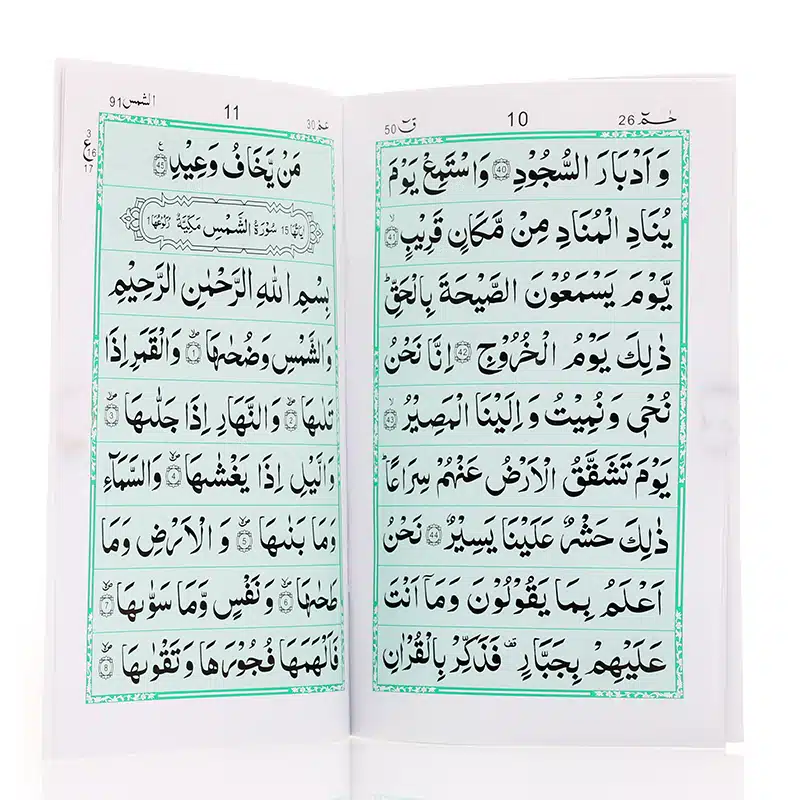 حٰمٓ 26
10
قٓ 50
وَاَدْبَارَ السُّجُوْدِ 40 وَاسْتَمِعْ يَوْمَ
يُنَادِ الْمُنَادِ مِنْ مَّكَانٍ قَرِيْبٍ 41
يَّوْمَ يَسْمَعُوْنَ الصَّيْحَةَ بِالْحَقِّ ؕ
ذٰلِكَ يَوْمُ الْخُرُوْجِ 42 اِنَّا نَحْنُ
نُحْيٖ وَنُمِيْتُ وَاِلَيْنَا الْمَصِيْرُ 43
يَوْمَ تَشَقَّقُ الْاَرْضُ عَنْهُمْ سِرَاعًا ؕ
ذٰلِكَ حَشْرٌ عَلَيْنَا يَسِيْرٌ 44 نَحْنُ
اَعْلَمُ بِمَا يَقُوْلُوْنَ وَمَآ اَنْتَ
عَلَيْهِمْ بِجَبَّارٍ ۟ فَذَكِّرْ بِالْقُرْاٰنِ
عَمَّ 30
11
الشمس 91
3
ع 16
17
مَنْ يَّخَافُ وَعِيْدِ 45
اٰيَاتُهَا 15 سُوْرَةُ الشَّمْسِ مَكِّيَّةٌ رُكُوْعُهَا 1
بِسْمِ اللهِ الرَّحْمٰنِ الرَّحِيْمِ
وَالشَّمْسِ وَضُحٰىهَا 1 وَالْقَمَرِ اِذَا
تَلٰىهَا 2 وَالنَّهَارِ اِذَا جَلّٰىهَا 3
وَالَّيْلِ اِذَا يَغْشٰىهَا 4 وَالسَّمَآءِ
وَمَا بَنٰىهَا 5 وَالْاَرْضِ وَمَا
طَحٰىهَا 6 وَنَفْسٍ وَّمَا سَوّٰىهَا 7
فَاَلْهَمَهَا فُجُوْرَهَا وَتَقْوٰىهَا 8